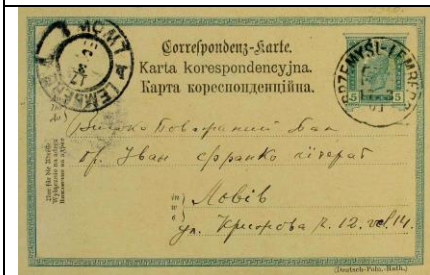 LEMBERG LWÓW
Correspondenz-Karte.
Karta korespondencyjna.
Карта кореспонденційна.
PRZEMYŚL-LEMBERG
5 5
Високо Поважаний Пан
др. Іван Франко літерат
in
w
в
Львів
ул. Крижова ч. 12.
(Deutsch-Poln.-Ruth.)